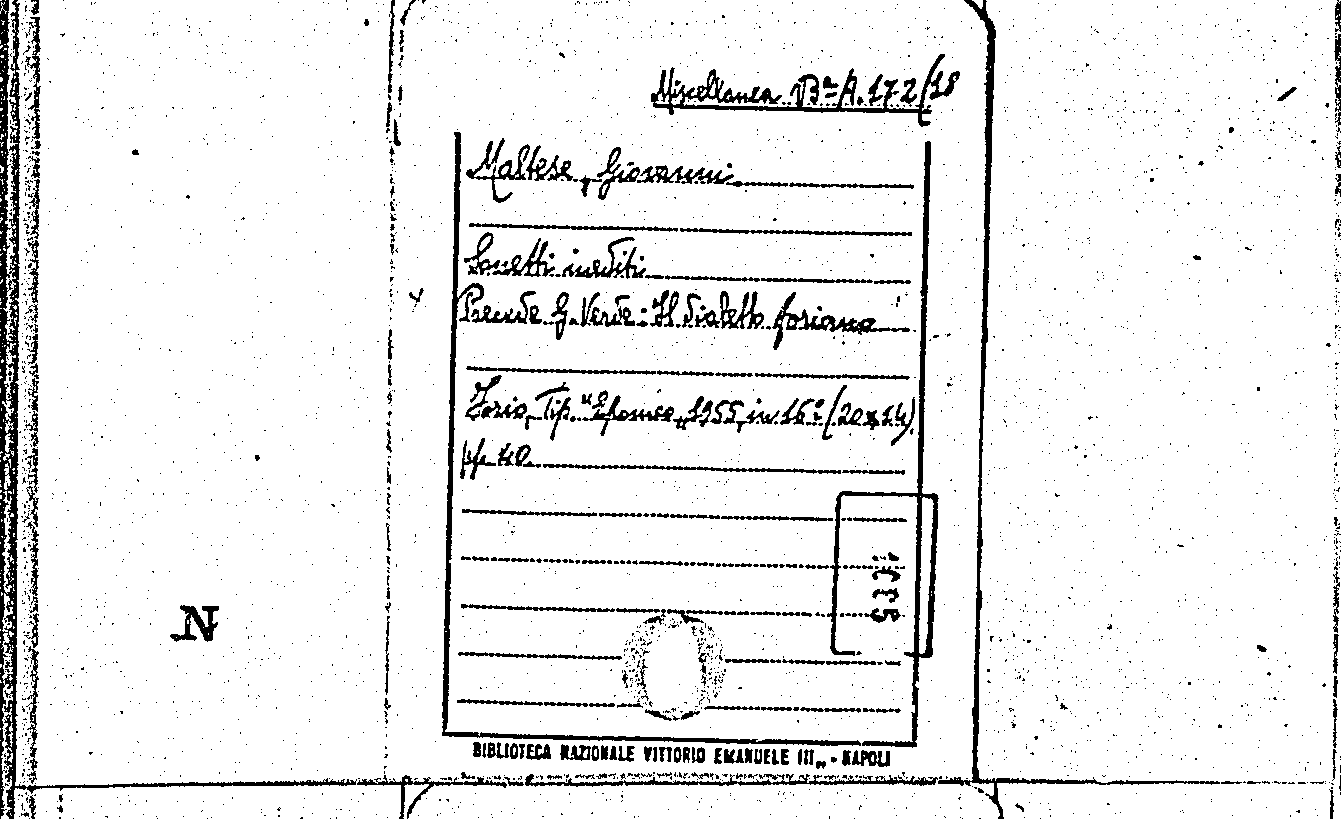 Miscellanea Bª A. 172/18
Maltese, Giovanni
Sonetti inediti
Precede G. Verde: Il dialetto foriano
Forio, Tip. "Epomeo", 1955, in 16º (20x14)
pp. 40
N
BIBLIOTECA NAZIONALE VITTORIO EMANUELE III„ - NAPOLI